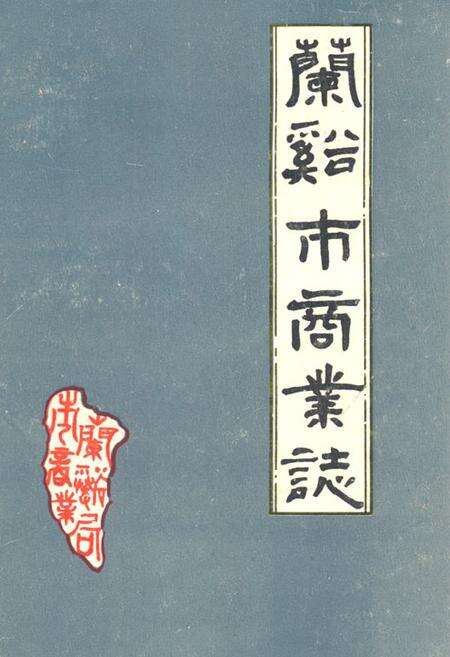 蘭谿市商業誌
蘭谿
市商業局